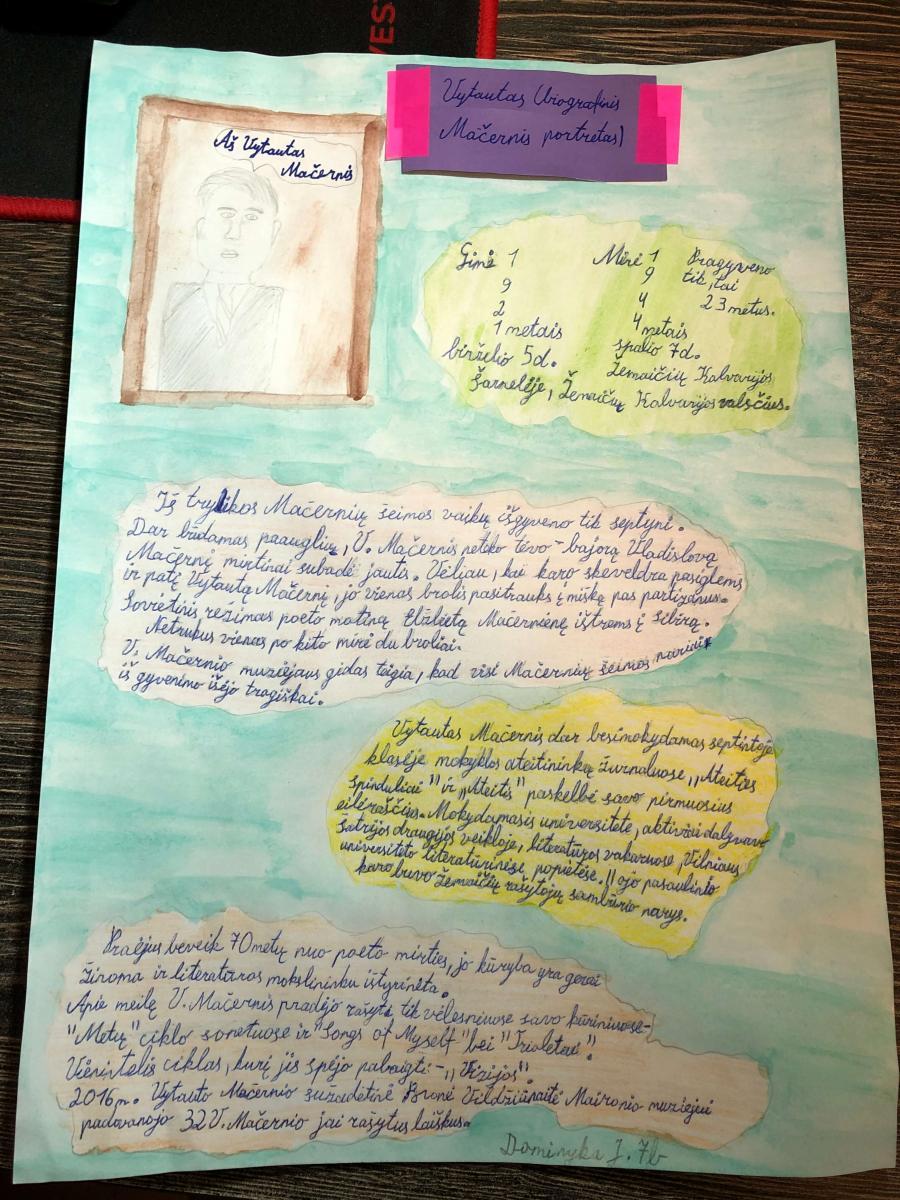 VES
Vytautas (biografinis
Mačernis portretas)
Aš Vytautas
Mačernis
Gimė 1
9
2
1 metais
birželio 5d.
Šarnelėje, Žemaičių Kalvarijos valsčius.
Mirė 1
9
4
4 metais
spalio 7d.
Žemaičių Kalvarijos
Pragyveno
tik, tai
23 metus.
Iš trylikos Mačernių šeimos vaikų išgyveno tik septyni.
Dar būdamas paaugliu, V. Mačernis neteko tėvo - bajorą Vladislovą
Mačernį mirtinai subadė jautis. Vėliau, kai karo skeveldra pasiglems
ir patį Vytautą Mačernį, jo vienas brolis pasitrauks į mišką pas partizanus.
Sovietinis režimas poeto motiną Elžbietą Mačernienę ištrems į Sibirą.
Netrukus vienas po kito mirė du broliai.
V. Mačernio muziejaus gidas teigia, kad visi Mačernių šeimos nariai
iš gyvenimo išėjo tragiškai.
Vytautas Mačernis dar besimokydamas septintoje
klasėje mokyklos ateitininkų žurnaluose, ,,Ateities
spinduliai" ir ,,Ateitis" paskelbė savo pirmuosius
eilėraščius. Mokydamasis universitete, aktyviai dalyvavo
Šatrijos draugijos veikloje, literatūros vakaruose, Vilniaus
universiteto literatūrinėse, popietėse. II ojo pasaulinio
karo buvo Žemaičių rašytojų sambūrio narys.
Praėjus beveik 70metų nuo poeto mirties, jo kūryba yra gerai
žinoma ir literatūros mokslininku ištyrinėta.
Apie meilę V. Mačernis pradėjo rašyti tik vėlesniuose savo kūriniuose-
"Metų" ciklo sonetuose ir "Songs of Myself" bei "Trioletai".
Vienintelis ciklas, kurį jis spėjo pabaigti - ,,Vizijos".
2016m. Vytauto Mačernio sužadėtinė Bronė Vildžiūnaitė Maironio muziejui
padovanojo 32 V. Mačernio jai rašytus laiškus.
Dominyka J. 7b